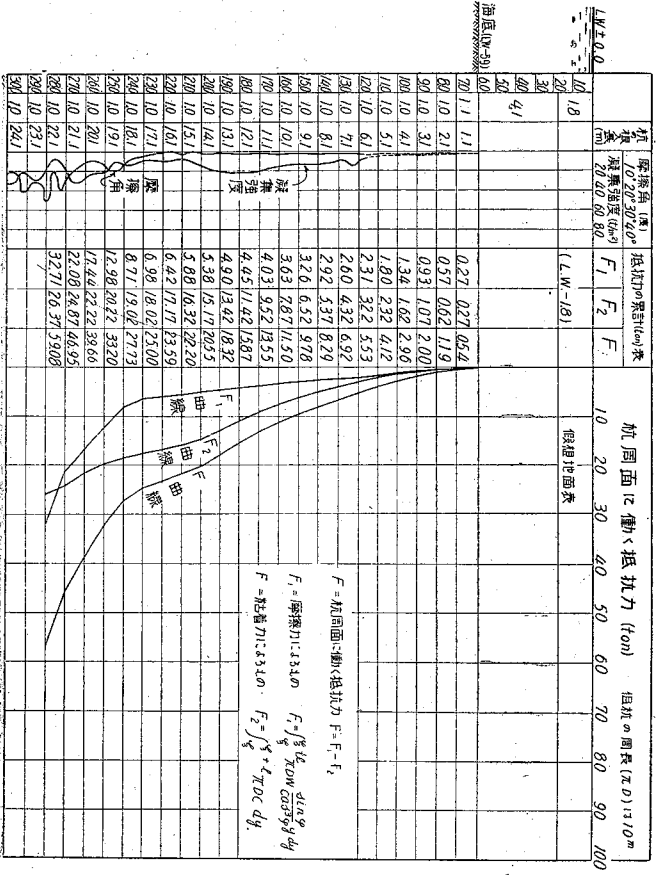 L.W±0.0
海底(LW-5.9)
杭の根入(m)
摩擦角(度)
10° 20° 30° 40°
凝集強度(t/m²)
20 40 60 80
抵抗力の累計(ton)表
F₁ F₂ F
杭周面に働く抵抗力 (ton) 但杭の周長(πD)は1.0ᵐ
10 20 30 40 50 60 70 80 90 100
1.0
20 1.8 (L.W-1.8) 假想地面表
30
40
50 4.1
6.0
7.0 1.1 1.1 0.27 0.27 0.54
8.0 1.0 2.1 0.57 0.62 1.19
9.0 1.0 3.1 0.93 1.07 2.00
10.0 1.0 4.1 1.34 1.62 2.96
11.0 1.0 5.1 1.80 2.32 4.12
12.0 1.0 6.1 2.31 3.22 5.53
13.0 1.0 7.1 2.60 4.32 6.92
14.0 1.0 8.1 2.92 5.37 8.29
15.0 1.0 9.1 3.26 6.52 9.78
16.0 1.0 10.1 3.63 7.87 11.50
17.0 1.0 11.1 4.03 9.52 13.55
18.0 1.0 12.1 4.45 11.42 15.87
19.0 1.0 13.1 4.90 13.42 18.32
20.0 1.0 14.1 5.38 15.17 20.55
21.0 1.0 15.1 5.88 16.32 22.20
22.0 1.0 16.1 6.42 17.17 23.59
23.0 1.0 17.1 6.98 18.02 25.00
24.0 1.0 18.1 8.71 19.02 27.73
25.0 1.0 19.1 12.98 20.22 33.20
26.0 1.0 20.1 17.44 22.22 39.66
27.0 1.0 21.1 22.08 24.87 46.95
28.0 1.0 22.1 32.71 26.37 59.08
29.0 1.0 23.1
30.0 1.0 24.1
凝集強度
摩擦角
F₁曲線
F₂曲線
F曲線
F=杭周面に働く抵抗力 F=F₁-F₂
F₁=摩擦力によるもの
F=粘着力によるもの